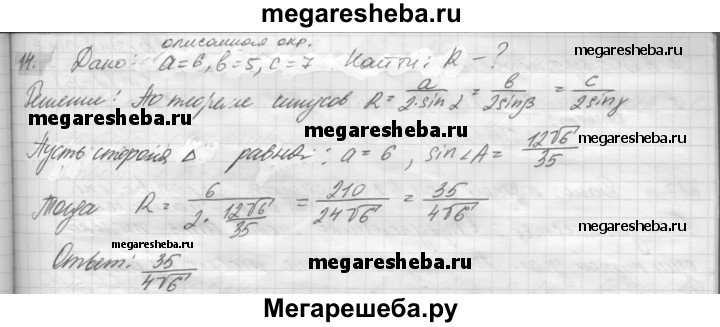 megaresheba.ru
описанная окр.
14. Дано: a=6, b=5, c=7. Найти: R-?
megaresheba.ru
Решение: По теореме синусов R = a/(2·sin α) = b/(2sin β) = c/(2sin γ)
megaresheba.ru megaresheba.ru
Пусть сторона Δ равна: a = 6, sin∠A = 12√6/35
Тогда R = 6/(2·12√6/35) = 210/(24√6) = 35/(4√6)
megaresheba.ru megaresheba.ru
Ответ: 35/(4√6)
megaresheba.ru megaresheba.ru
Мегарешеба.ру